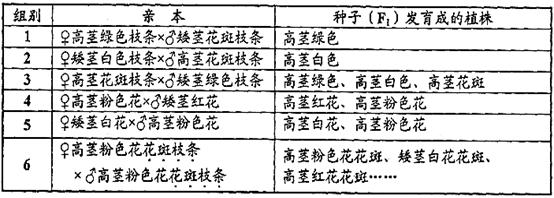 组别 亲 本 种子(F₁)发育成的植株
1 ♀高茎绿色枝条×♂矮茎花斑枝条 高茎绿色
2 ♀矮茎白色枝条×♂高茎花斑枝条 高茎白色
3 ♀高茎花斑枝条×♂矮茎绿色枝条 高茎绿色、高茎白色、高茎花斑
4 ♀高茎粉色花×♂矮茎红花 高茎红花、高茎粉色花
5 ♀矮茎白花×♂高茎粉色花 高茎白花、高茎粉色花
6 ♀高茎粉色花花斑枝条 高茎粉色花花斑、矮茎白花花斑、
×♂高茎粉色花花斑枝条 高茎红花花斑……